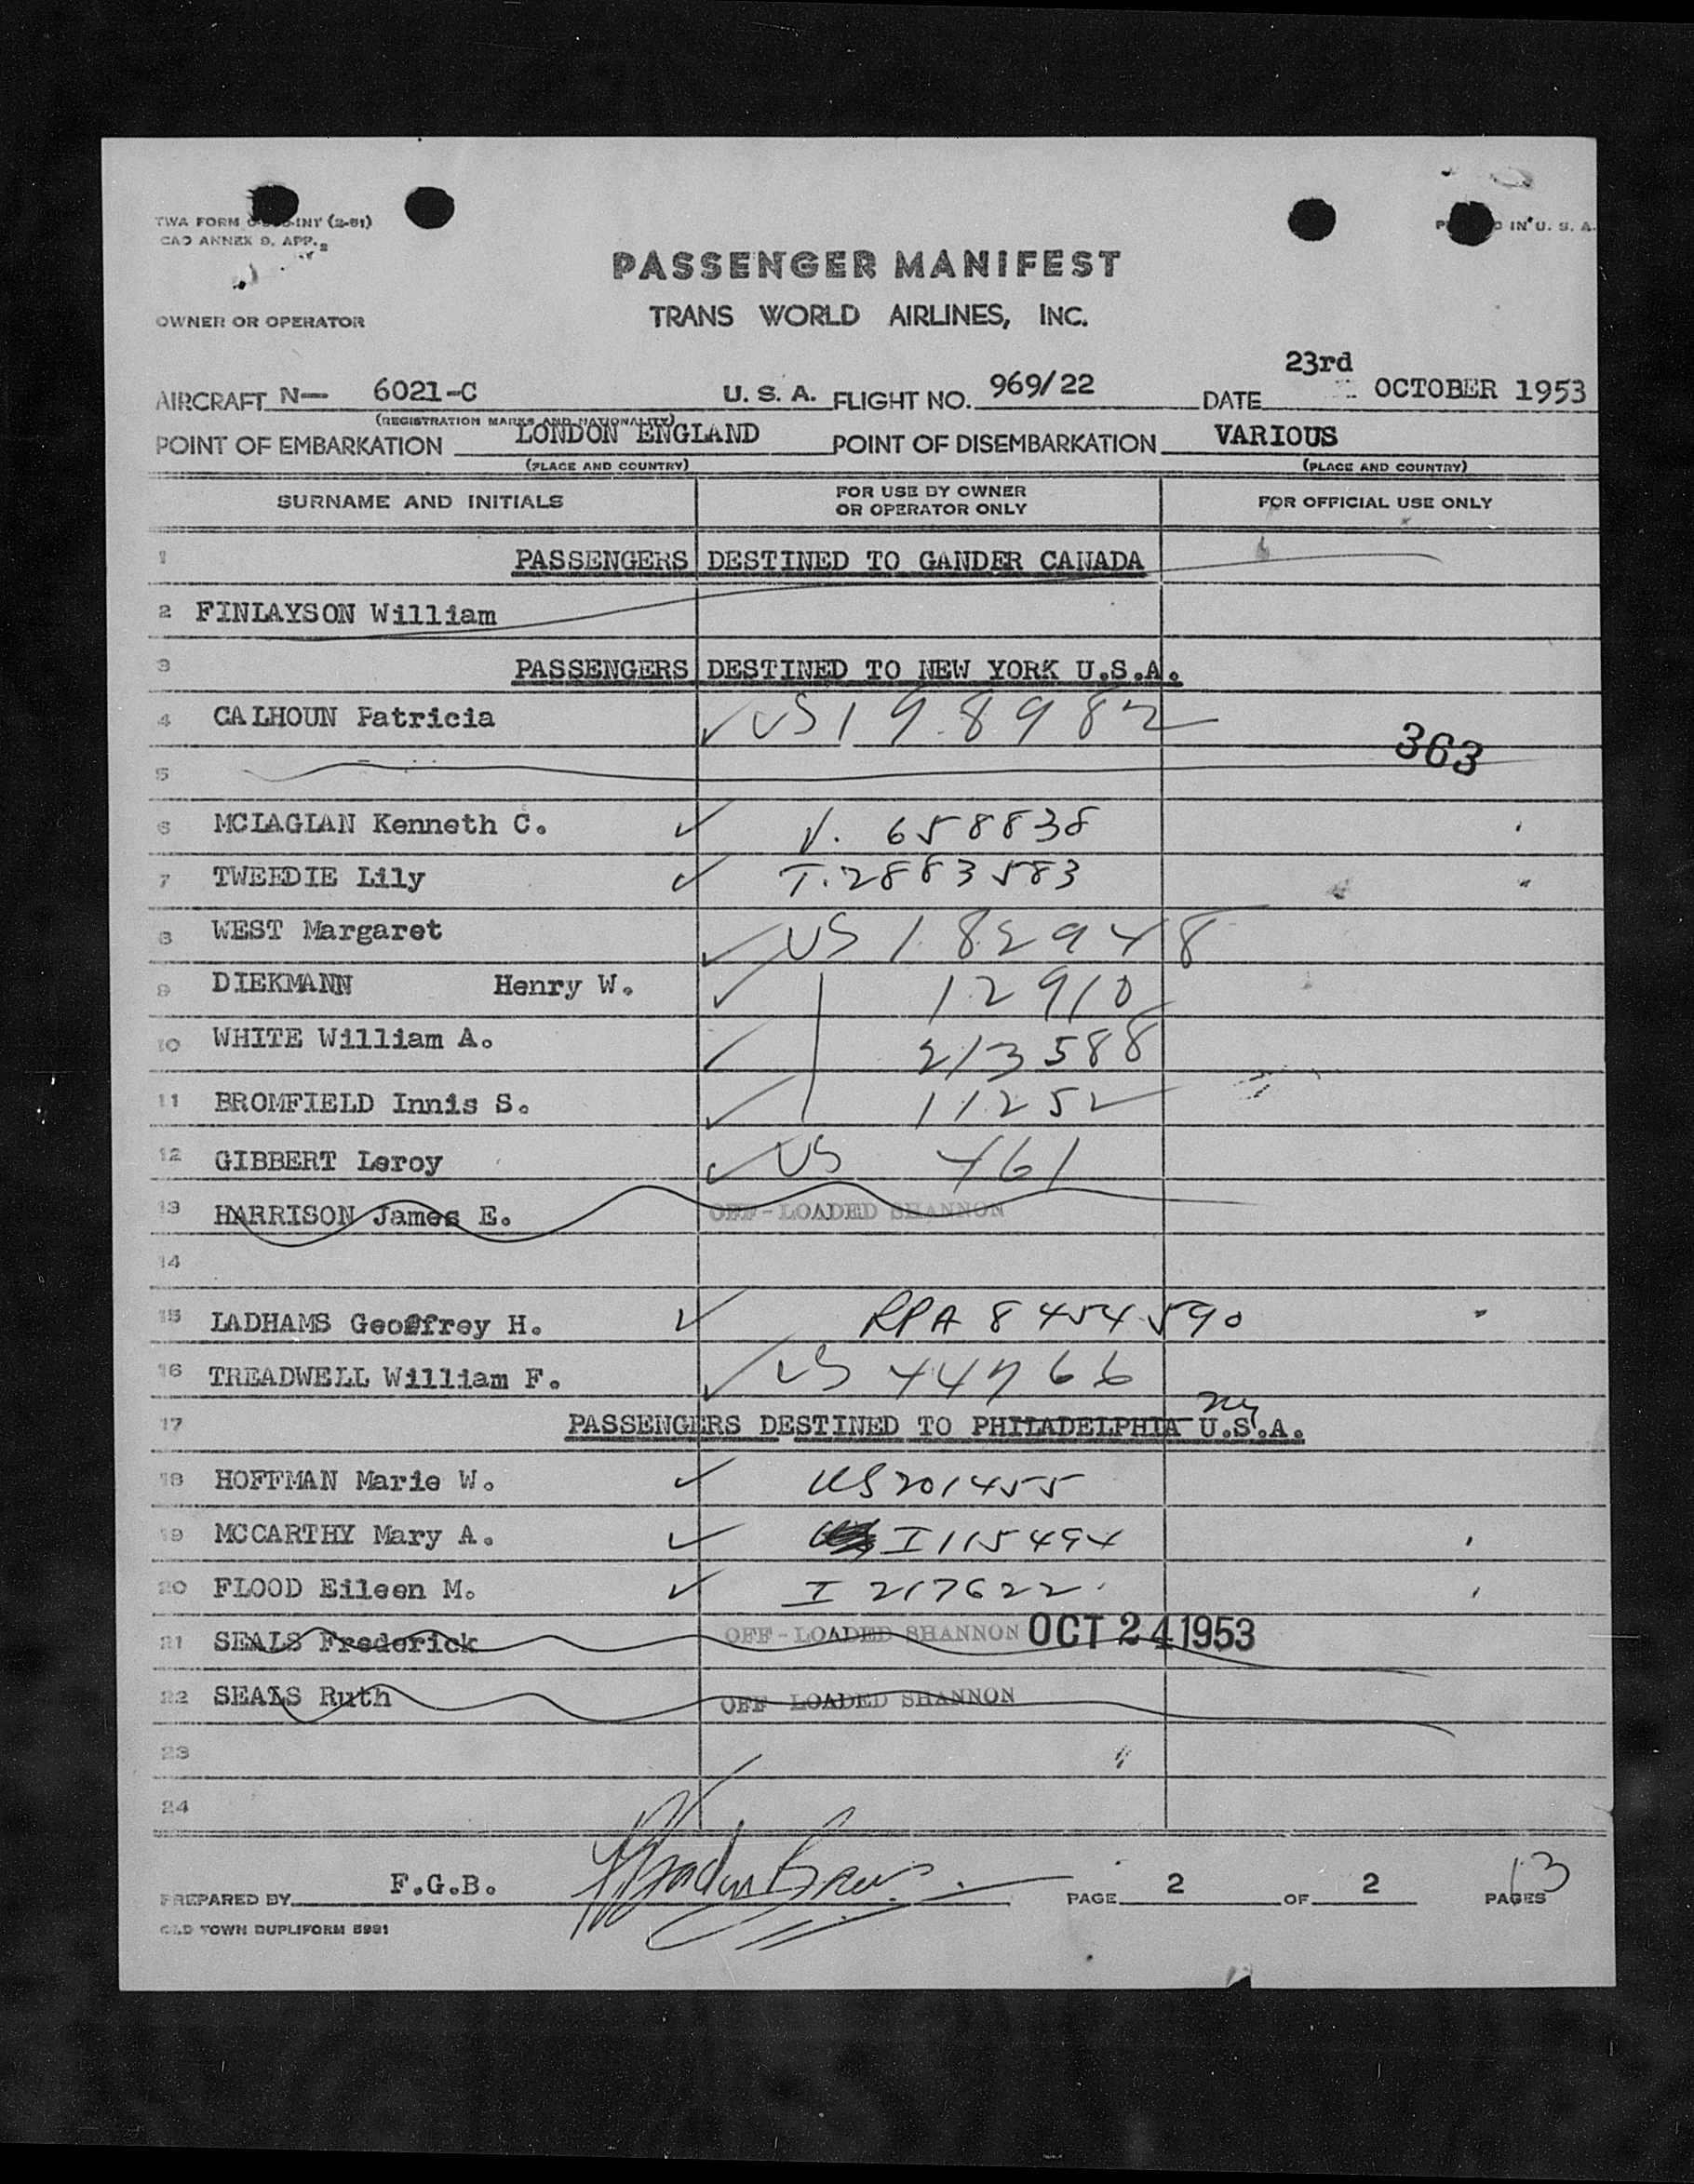 TWA FORM INT (2-51)
CAO ANNEX 9, APP. 2
IN U. S. A.
PASSENGER MANIFEST
OWNER OR OPERATOR TRANS WORLD AIRLINES, INC.
23rd
AIRCRAFT N— 6021-C U. S. A. FLIGHT NO. 969/22 DATE OCTOBER 1953
(REGISTRATION MARKS AND NATIONALITY)
POINT OF EMBARKATION LONDON ENGLAND POINT OF DISEMBARKATION VARIOUS
(PLACE AND COUNTRY) (PLACE AND COUNTRY)
SURNAME AND INITIALS FOR USE BY OWNER OR OPERATOR ONLY FOR OFFICIAL USE ONLY
1 PASSENGERS DESTINED TO GANDER CANADA
2 FINLAYSON William
3 PASSENGERS DESTINED TO NEW YORK U.S.A.
4 CALHOUN Patricia ✓ US 198982
363
5
6 MCLAGLAN Kenneth C. ✓ V. 658838
7 TWEEDIE Lily ✓ T. 2883583
8 WEST Margaret ✓ US 182948
9 DIEKMANN Henry W. ✓ 12910
10 WHITE William A. ✓ 213588
11 BROMFIELD Innis S. ✓ 11252
12 GIBBERT Leroy ✓ US 461
13 HARRISON James E. OFF-LOADED SHANNON
14
15 LADHAMS Geoffrey H. ✓ RPA 8454590
16 TREADWELL William F. ✓ US 44766
17 PASSENGERS DESTINED TO PHILADELPHIA NY U.S.A.
18 HOFFMAN Marie W. ✓ US 201455
19 MCCARTHY Mary A. ✓ I 115494
20 FLOOD Eileen M. ✓ I 217622
21 SEALS Frederick OFF-LOADED SHANNON OCT 24 1953
22 SEALS Ruth OFF LOADED SHANNON
23
24
PREPARED BY F.G.B. PAGE 2 OF 2 PAGES 13
OLD TOWN DUPLIFORM 5981